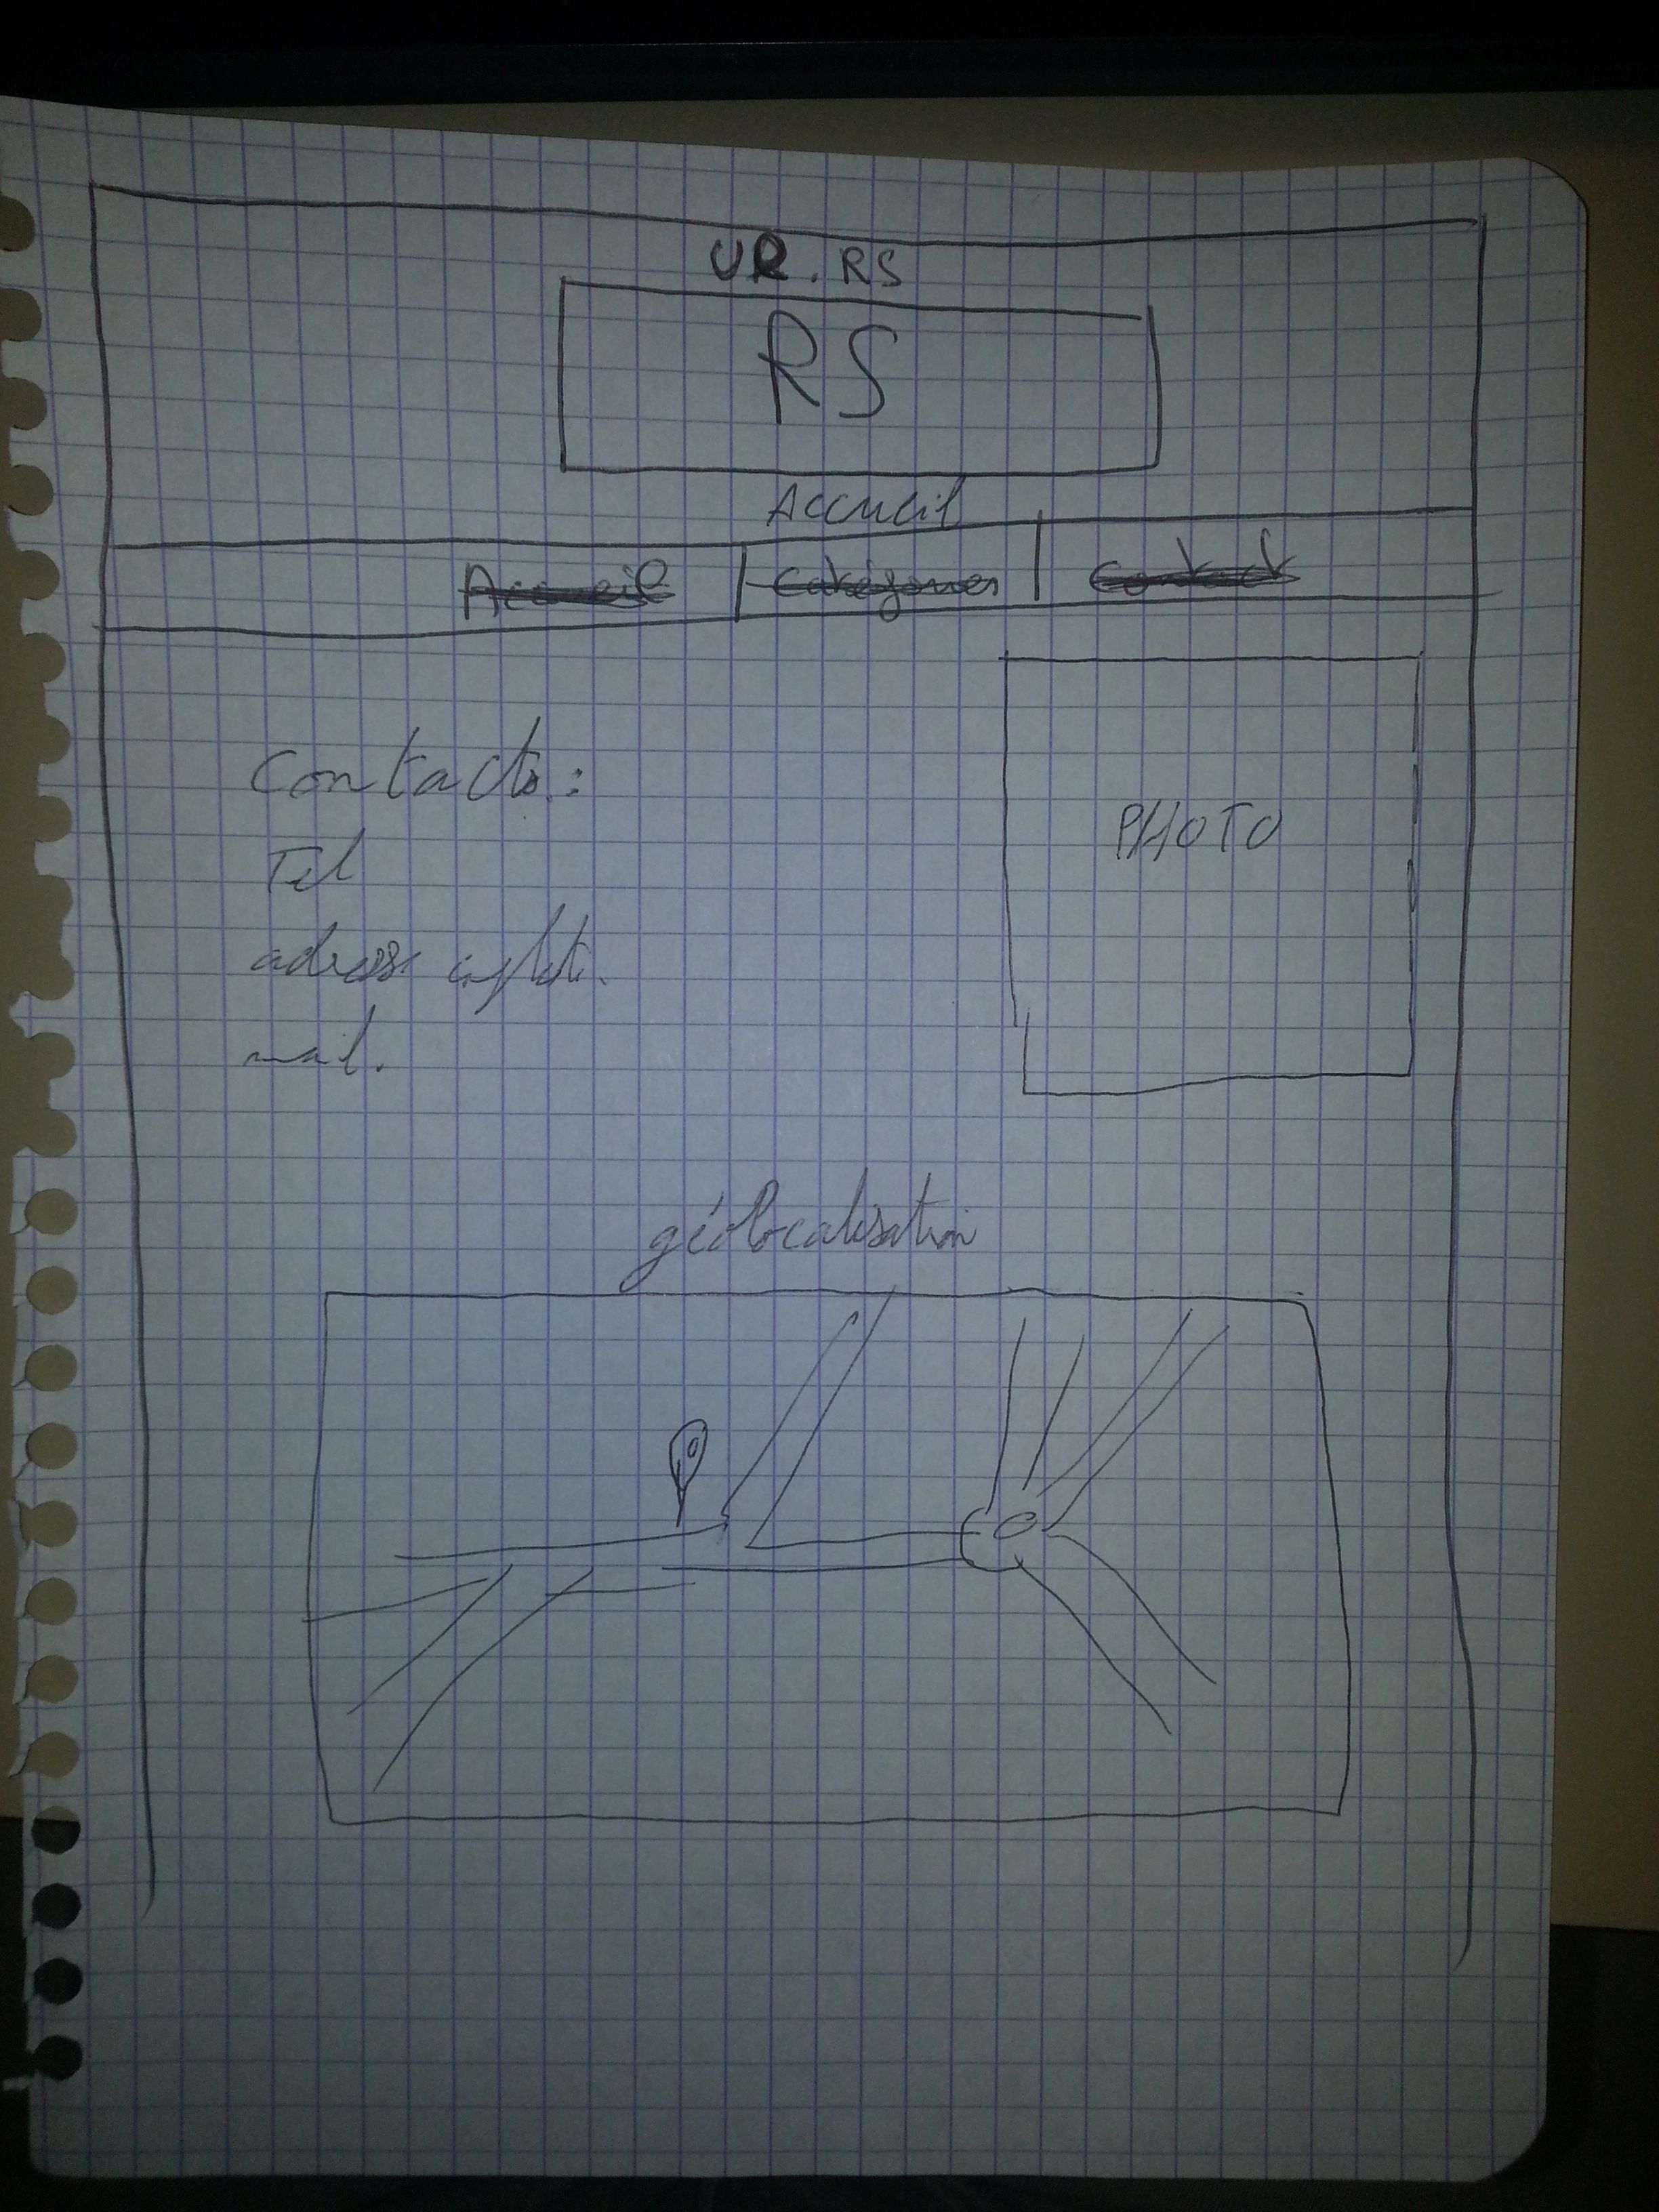 UR.RS
RS
Accueil
Accueil Catégories Contact
Contacts :
Tel
adresse complète.
mail.
PHOTO
géolocalisation